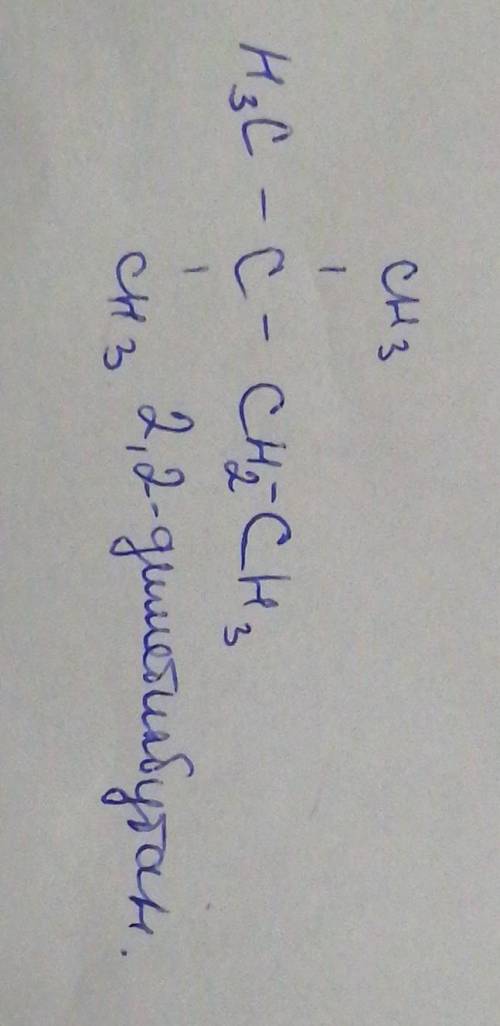 CH3
H3C - C - CH2 - CH3
CH3
2,2-диметилбутан.